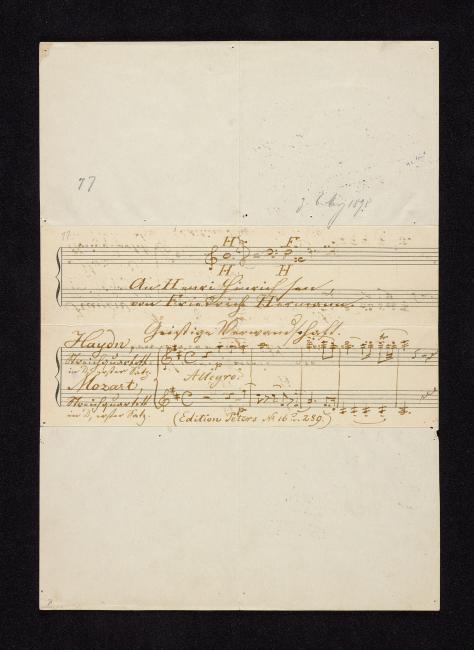 77
Mai 1898
H F
H H
An Henri Hinrichsen,
von Friedrich Hermann.
Geistige Verwandschaft.
Haydn,
Streichquartett
in D, erster Satz.
Allegro.
Mozart,
Streichquartett
in D, erster Satz.
(Edition Peters № 16 u. 289.)